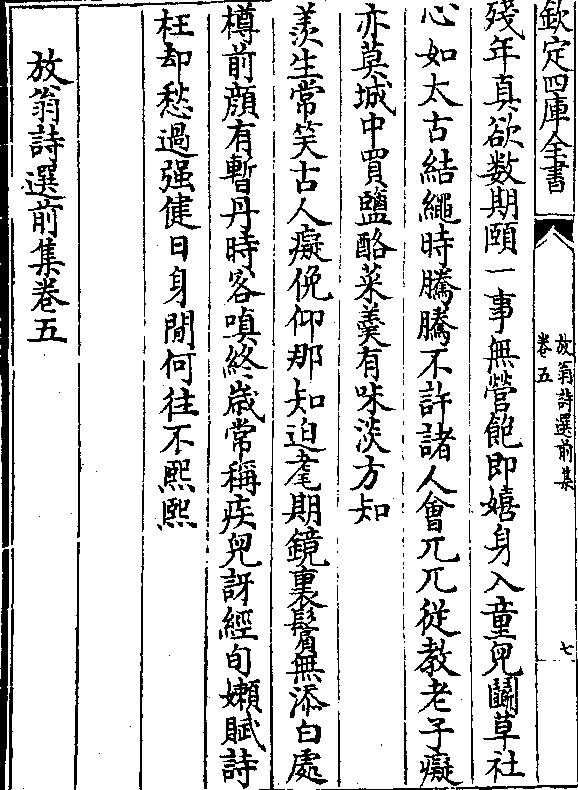 欽定四庫全書
放翁詩選前集
卷五
七
殘年真欲数期頤一事無營飽即嬉身入童兒鬭草社
心如太古結繩時騰騰不許諸人會兀兀從教老子癡
亦莫城中買鹽酪菜羮有味淡方知
羨生常笑古人癡俛仰那知迫耄期鏡裏鬢無添白處
樽前顔有暫丹時客嗔終歲常稱疾兒訝經旬嬾賦詩
枉却愁過强健日身閒何往不熙熙
放翁詩選前集卷五